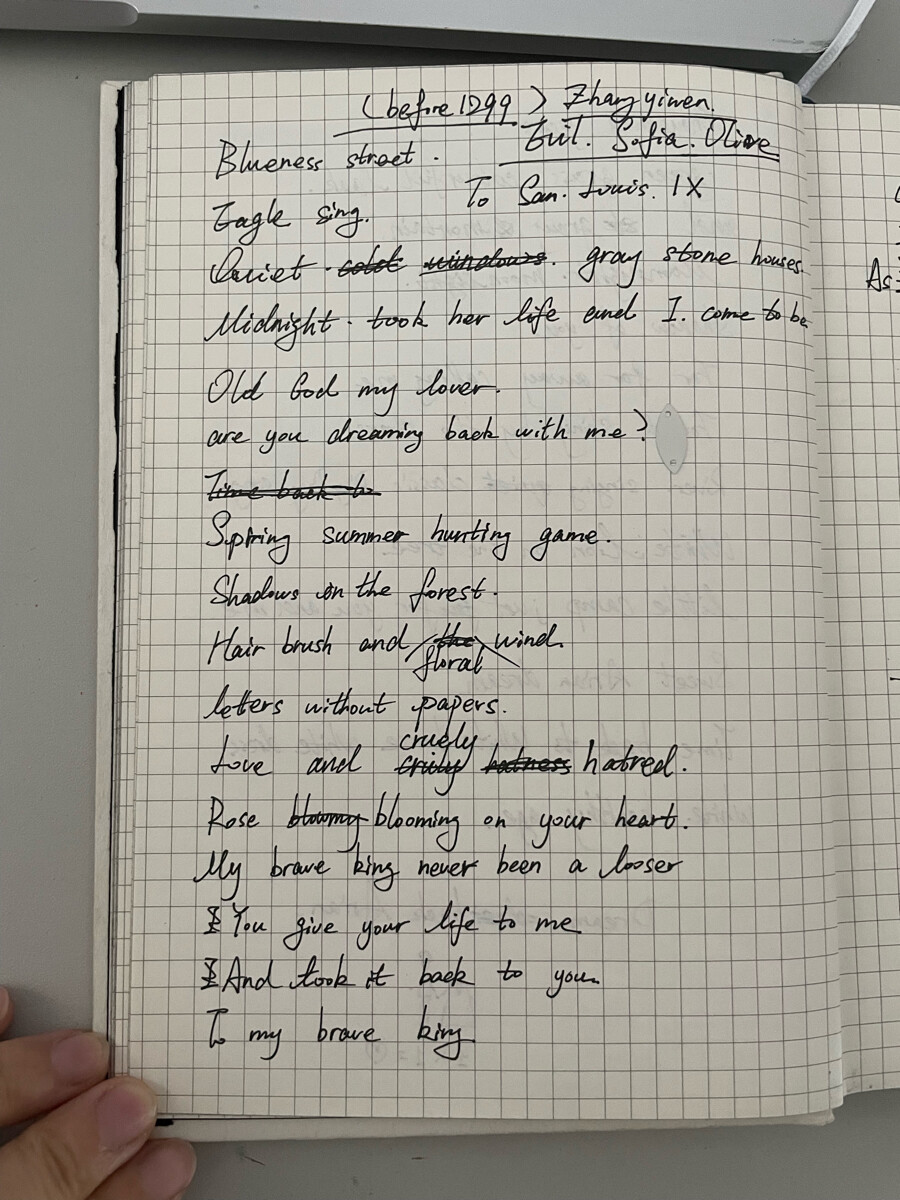 (before 1299) Zhang yiwen.
Evil. Sofia. Olive
Blueness street.
To San. Louis. IX
Eagle sing.
Quiet. cold windows. gray stone houses.
Midnight. took her life and I. come to be
Old God my lover.
are you dreaming back with me?
Time back to
Spring summer hunting game.
Shadows on the forest.
Hair brush and the wind.
floral
letters without papers.
cruely
Love and hatness hatred.
Rose bloomy blooming on your heart.
My brave king never been a looser
I You give your life to me
I And took it back to you.
To my brave king
As